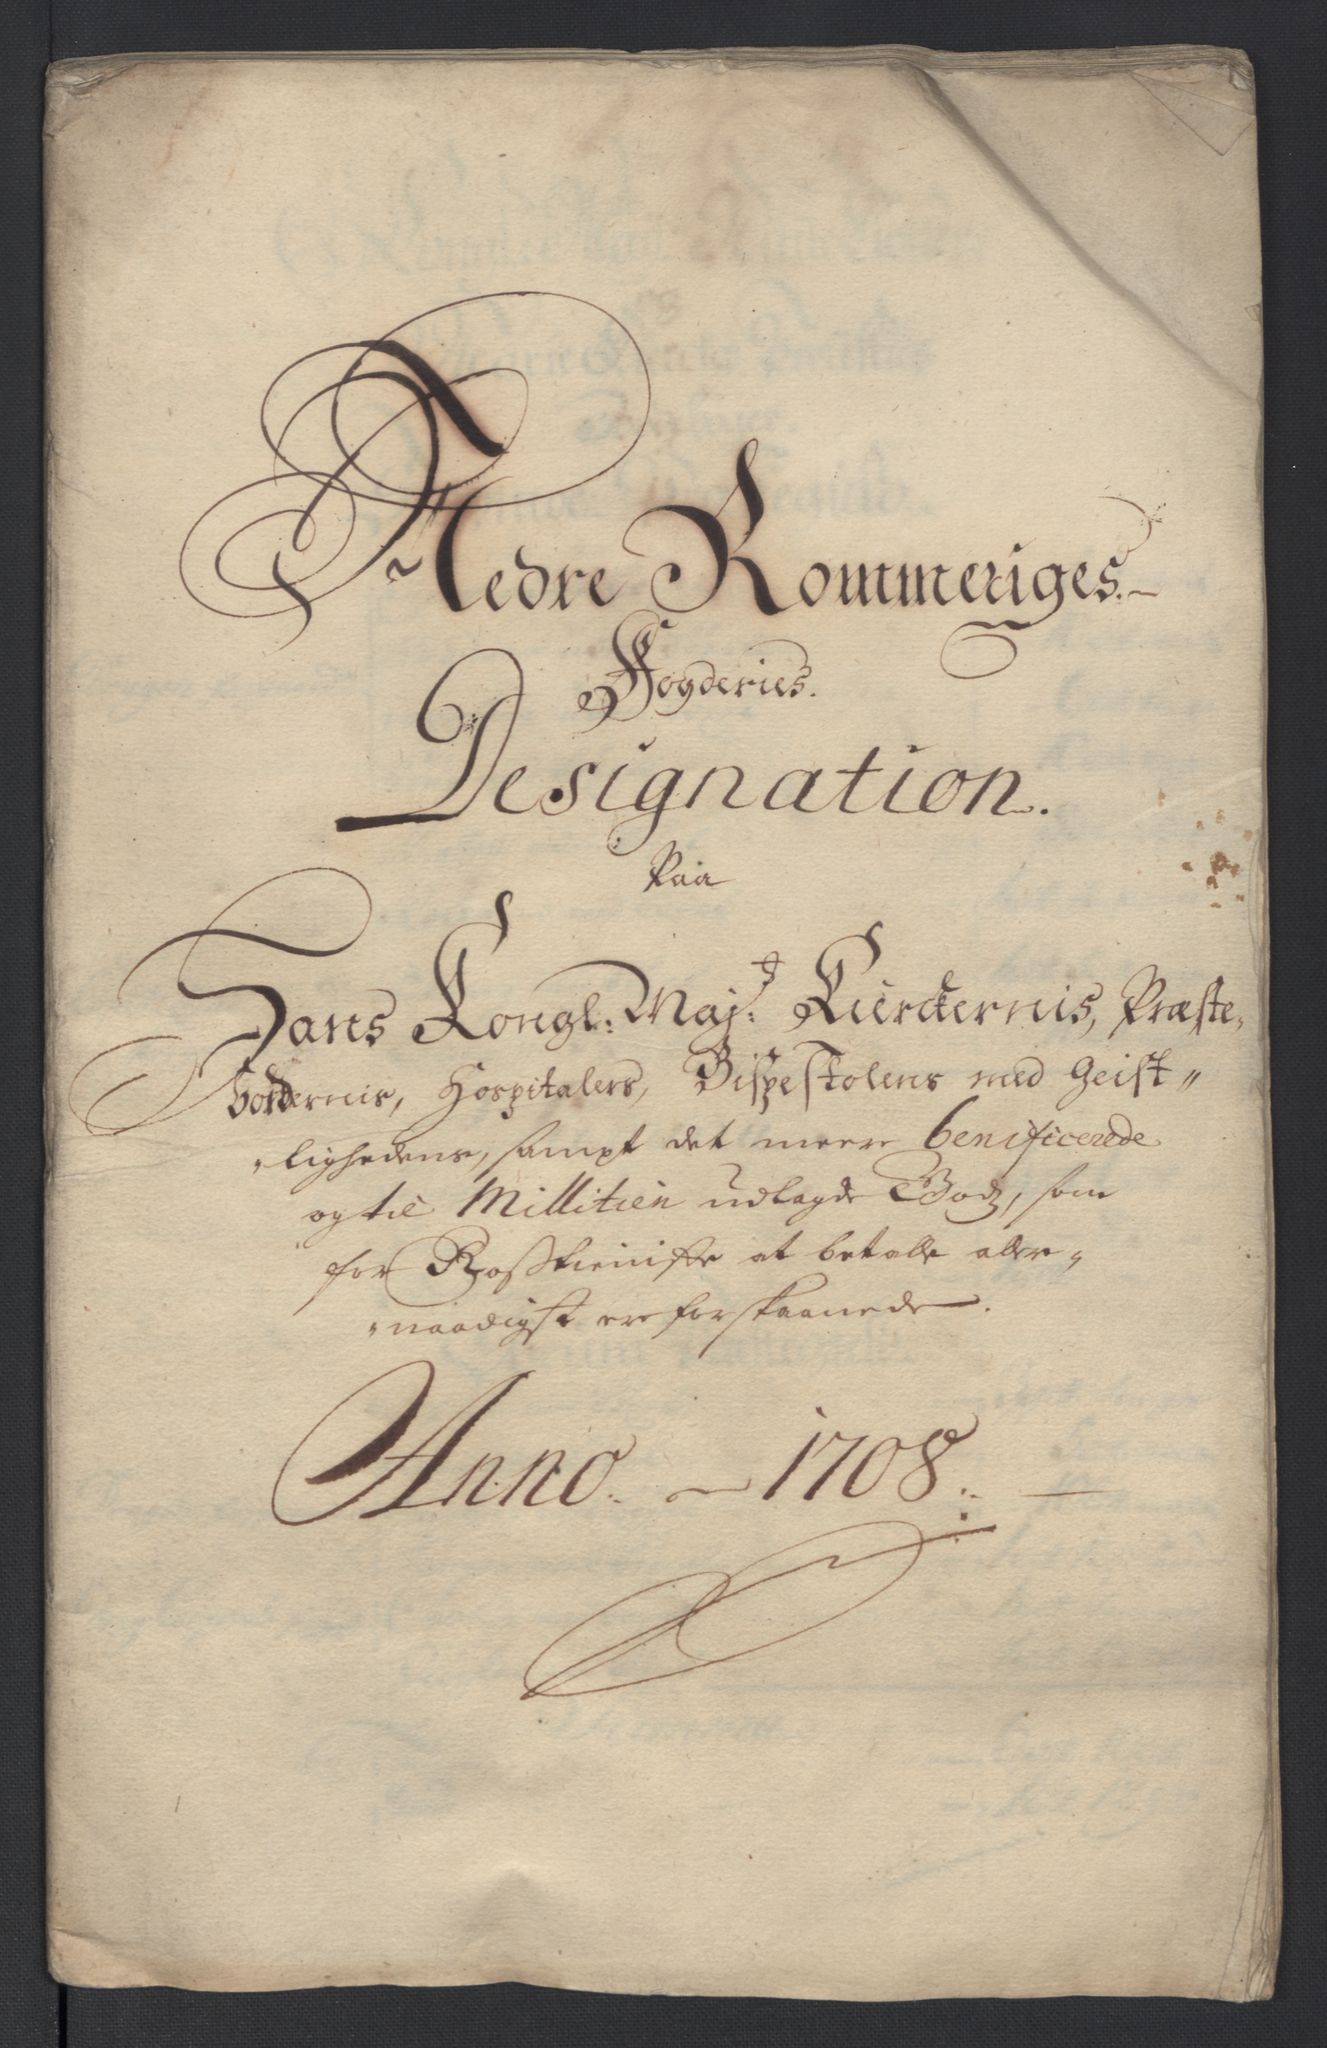 Nedre Rommeriges.
Fogderies.
Designation.
Paa
Hans Kongl: Maj:t Kierckernis, Præste,
bordernis, Hospitalers, Bispestolens med Geist„
„lighedens, sampt det meere benificerede
og til Millitien udlagde Godz, som
for Rosstieniste at betalle aller„
„naadigst ere forskaanede.
Anno. 1708.